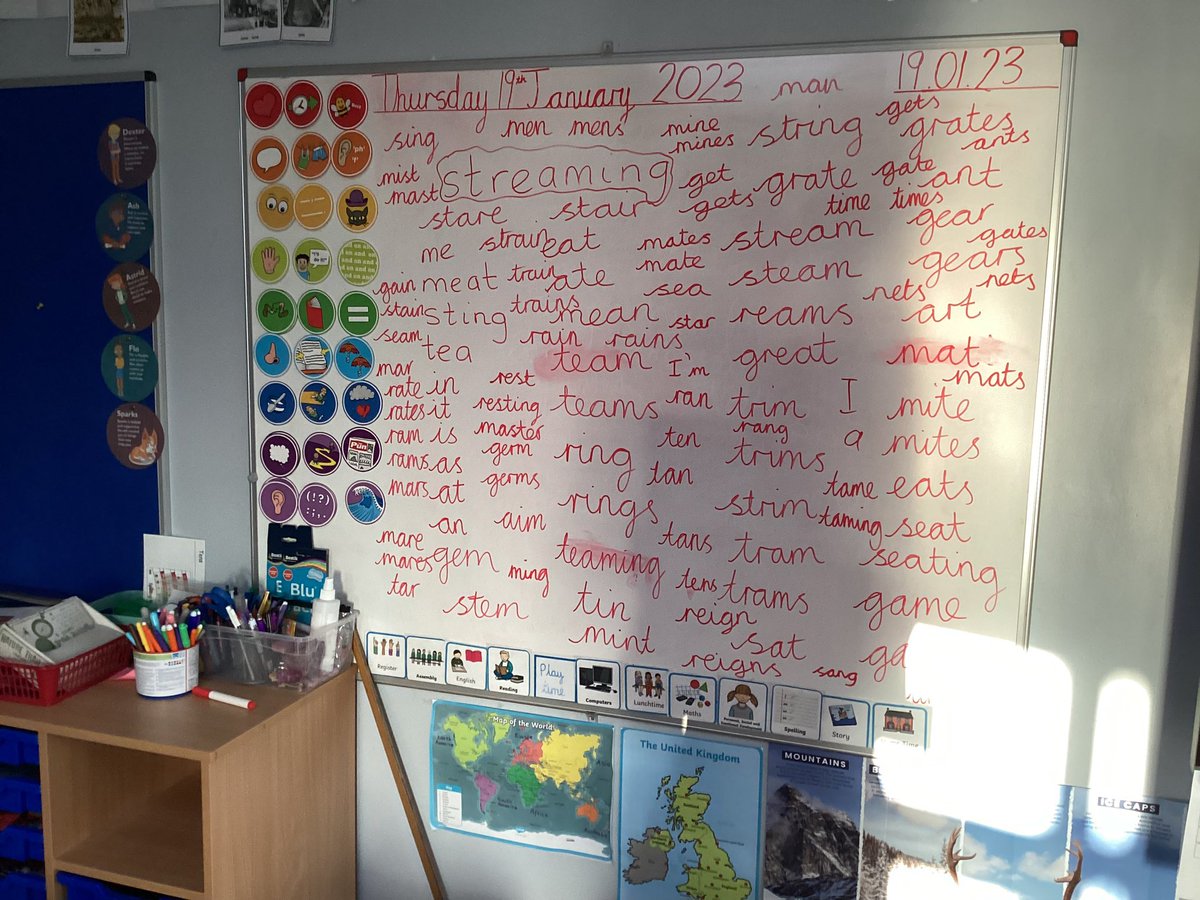 Thursday 19th January 2023 man 19.01.23
sing men mens mine string gets
mines grates
ants
mist streaming get grate gate ant
mast gets time times
stare stair
me strain eat mates stream gear
gates
gain meat train ate mate steam gears
sea nets nets
stain sting trains mean star reams art
seam rain rains
tea team I'm great mat
mar rest mats
rate in teams ran trim I mite
rates it resting
ram is master ring ten rang a mites
germ trims
rams as tan tame eats
mars at germs rings strim taming seat
an aim
mare teaming tans tram seating
mares gem ming tens trams game
tar stem tin reign
mint sat ga
reigns sang
Dexter
Ash
Astrid
Fin
Sparks
BUZZ
'ph'
'f'
"I'll do it!"
and an and
Pun
(!?)
Test
Blu
Register
Assembly
English
Reading
Play time
Computers
Lunchtime
Maths
Spelling
Story
Time
Map of the World
Africa
The United Kingdom
MOUNTAINS
ICE CAPS